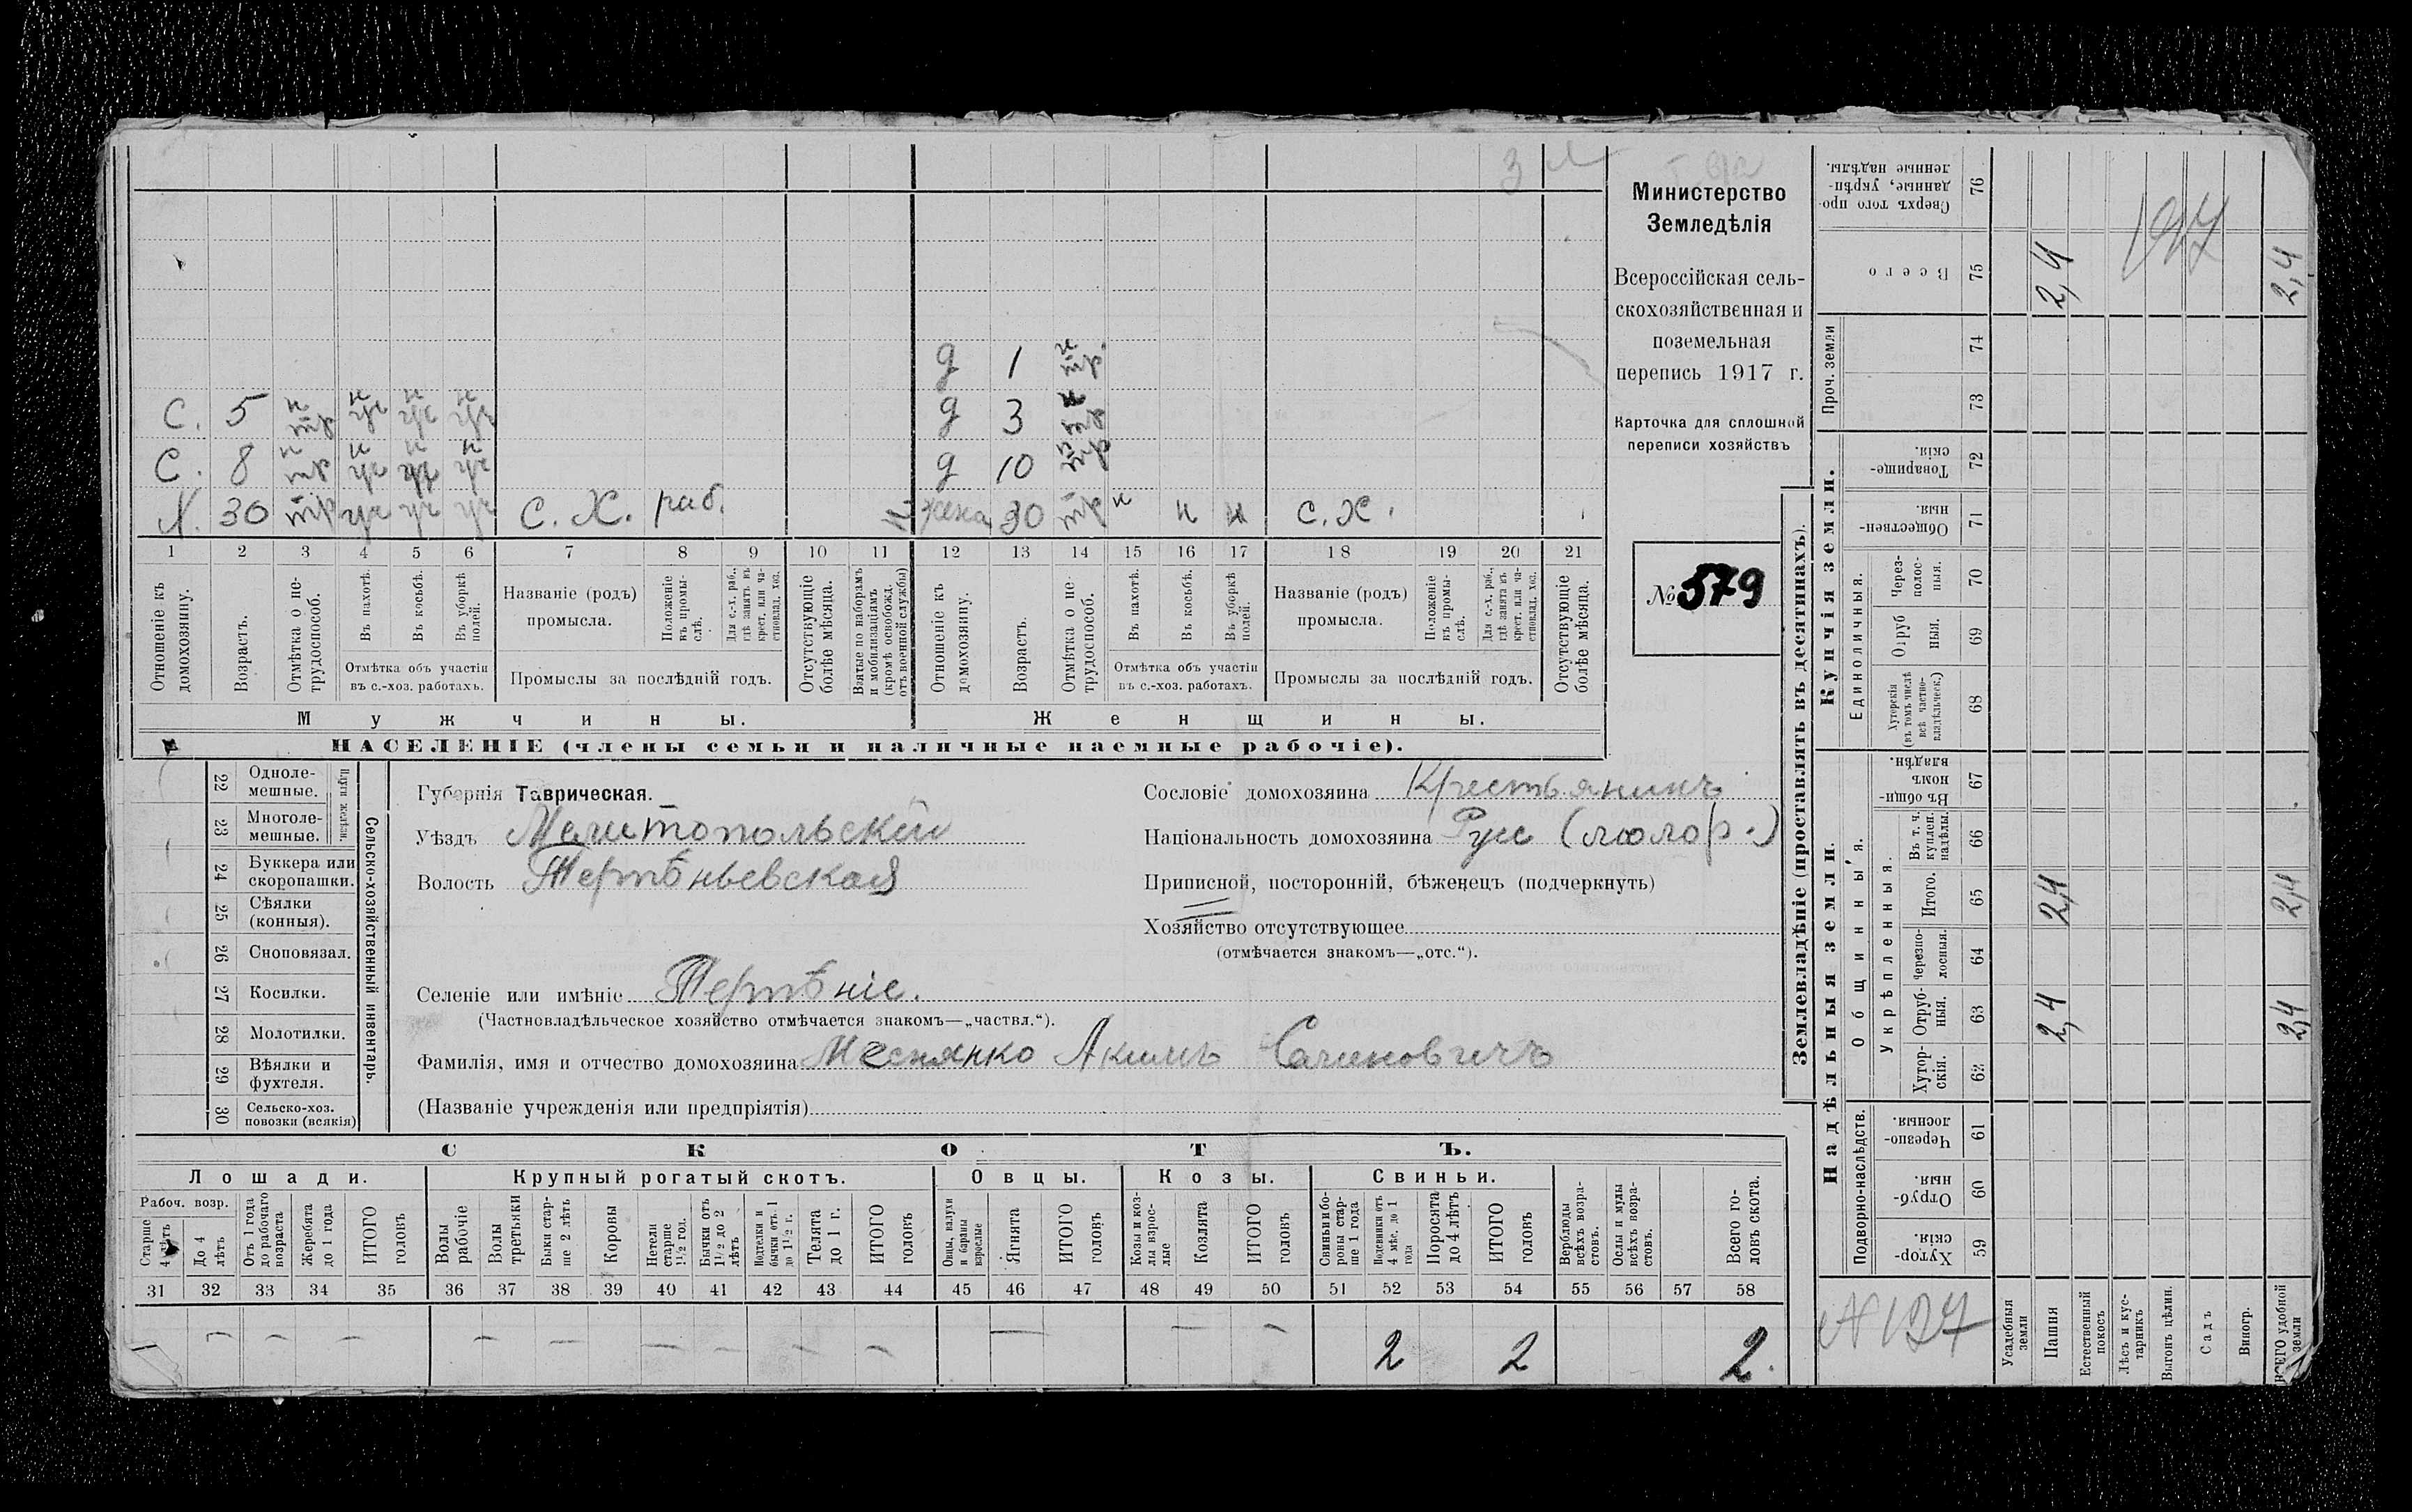 Министерство
Земледѣлія
Всероссійская сель-
скохозяйственная и
поземельная
перепись 1917 г.
Карточка для сплошной
переписи хозяйствъ
№ 579
д 1 н тр.
С. 5 н тр н уч н уч н уч д 3 н тр
С. 8 н тр н уч н уч н уч д 10 н тр
30 тр уч уч уч С. Х. раб. жена 30 тр н н н С. Х.
1 2 3 4 5 6 7 8 9 10 11 12 13 14 15 16 17 18 19 20 21
Отношеніе къ домохозяину.
Возрастъ.
Отмѣтка о не-трудоспособ.
Въ пахотѣ.
Въ косьбѣ.
Въ уборкѣ полей.
Отмѣтка объ участіи въ с.-хоз. работахъ.
Названіе (родъ) промысла.
Положеніе въ промы-слѣ.
Для с.-х. раб., гдѣ занятъ въ крест. или ча-стновлад. хоз.
Промыслы за послѣдній годъ.
Отсутствующіе болѣе мѣсяца.
Взятые по наборамъ и мобилизаціямъ (кромѣ освобожд. отъ военной службы)
Отношеніе къ домохозяину.
Возрастъ.
Отмѣтка о не-трудоспособ.
Въ пахотѣ.
Въ косьбѣ.
Въ уборкѣ полей.
Отмѣтка объ участіи въ с.-хоз. работахъ.
Названіе (родъ) промысла.
Положеніе въ промы-слѣ.
Для с.-х. раб., гдѣ занята въ крест. или ча-стновлад. хоз.
Промыслы за послѣдній годъ.
Отсутствующіе болѣе мѣсяца.
Мужчины. Женщины.
НАСЕЛЕНІЕ (члены семьи и наличные наемные рабочіе).
Сельско-хозяйственный инвентарь.
Плуги желѣзн.
22 Одноле-мешные.
23 Многоле-мешные.
24 Буккера или скоропашки.
25 Сѣялки (конныя).
26 Сноповязал.
27 Косилки.
28 Молотилки.
29 Вѣялки и фухтеля.
30 Сельско-хоз. повозки (всякія)
Губернія Таврическая.
Уѣздъ Мелитопольскій
Волость Терпѣньевская
Сословіе домохозяина Крестьянинъ
Національность домохозяина Рус (малор.)
Приписной, посторонній, бѣженецъ (подчеркнуть)
Хозяйство отсутствующее
(отмѣчается знакомъ—„отс.“).
Селеніе или имѣніе Терпѣніе.
(Частновладѣльческое хозяйство отмѣчается знакомъ—„частвл.“).
Фамилія, имя и отчество домохозяина Акимъ
(Названіе учрежденія или предпріятія)
СКОТЪ.
Лошади. Крупный рогатый скотъ. Овцы. Козы. Свиньи.
Рабоч. возр.
Старше 4 лѣтъ
До 4 лѣтъ
Отъ 1 года до рабочаго возраста
Жеребята до 1 года
ИТОГО головъ
Волы рабочіе
Волы третьяки
Быки стар-ше 2 лѣтъ
Коровы
Нетели старше 1½ год.
Бычки отъ 1½ до 2 лѣтъ
Подтелки и бычки отъ 1 до 1½ г.
Телята до 1 г.
ИТОГО головъ
Овцы, валухи и бараны взрослые
Ягнята
ИТОГО головъ
Козы и коз-лы взрос-лые
Козлята
ИТОГО головъ
Свиньи и бо-ровы стар-ше 1 года
Подсвинки отъ 4 мѣс. до 1 года
Поросята до 4 лѣтъ
ИТОГО головъ
Верблюды всѣхъ возра-стовъ.
Ослы и мулы всѣхъ возра-стовъ.
Всего го-ловъ скота.
31 32 33 34 35 36 37 38 39 40 41 42 43 44 45 46 47 48 49 50 51 52 53 54 55 56 57 58
2 2 2
Землевладѣніе (проставлять въ десятинахъ).
Купчія земли.
Надѣльныя земли.
Проч. земли
Единоличныя.
Общинныя.
Укрѣпленныя.
Подворно-наслѣдств.
Сверхъ того про-данные, укрѣп-ленные надѣлы. 76
Всего 75 2,4 2,4
74
73
Товарище-скія. 72
Обществен-ныя. 71
Через-полос-ныя. 70
Отруб-ныя. 69
Хуторскія (въ томъ числѣ всѣ частно-владѣльческ.) 68
Въ общи-номъ владѣн. 67
Въ т. ч. куплен. надѣлы. 66
Итого. 65 2,4 2,4
Черезпо-лосныя. 64
Отруб-ныя. 63 2,4 2,4
Хутор-скія. 62
Черезпо-лосныя. 61
Отруб-ныя. 60
Хутор-скія. 59
Усадебныя земли
Пашня
Естественный покосъ
Лѣсъ и кус-тарникъ
Выгонъ цѣлин.
Садъ
Виногр.
ВСЕГО удобной земли
197
№ 127